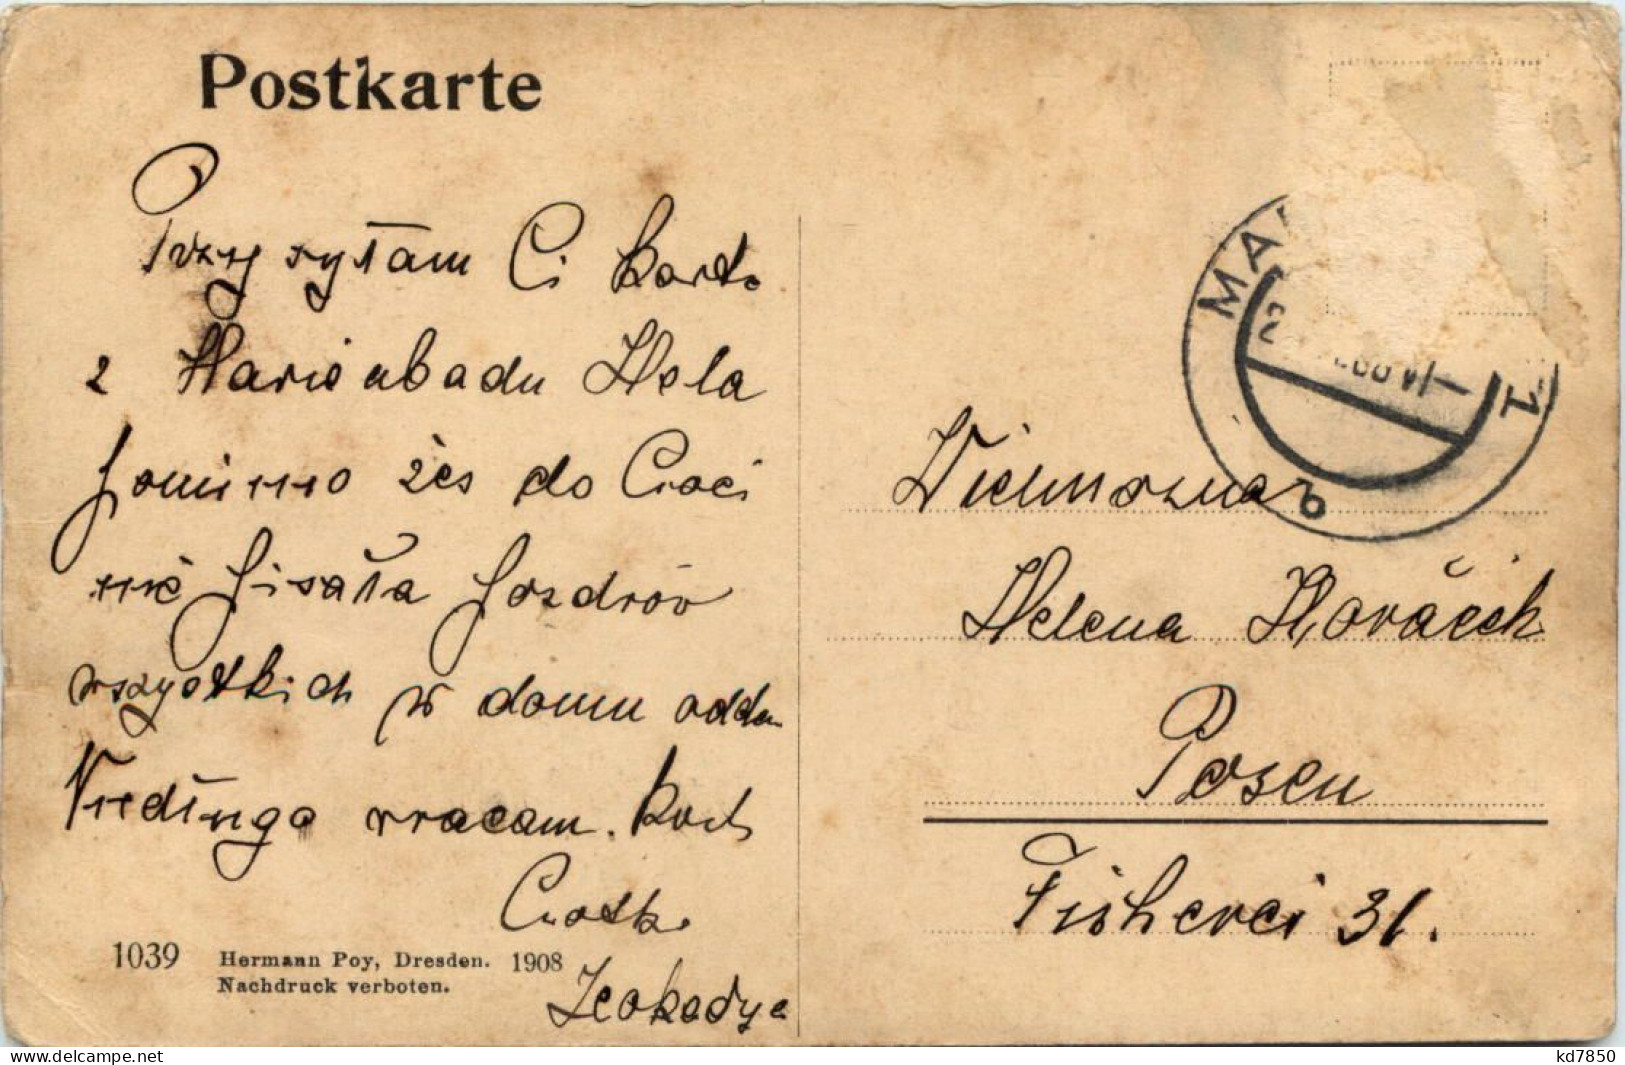 Postkarte
Przysyłam Ci kartę
z Marienbadu Hela
pomimo żeś do Cioci
nie pisała pozdrów
wszystkich w domu odda
Niedługo wracam. Koch
Ciotka
Leokadya
1039 Hermann Poy, Dresden. 1908
Nachdruck verboten.
MA 1
Wielmożna
Helena Kováček
Posen
Fischerei 31.
delcampe.net
kd7850